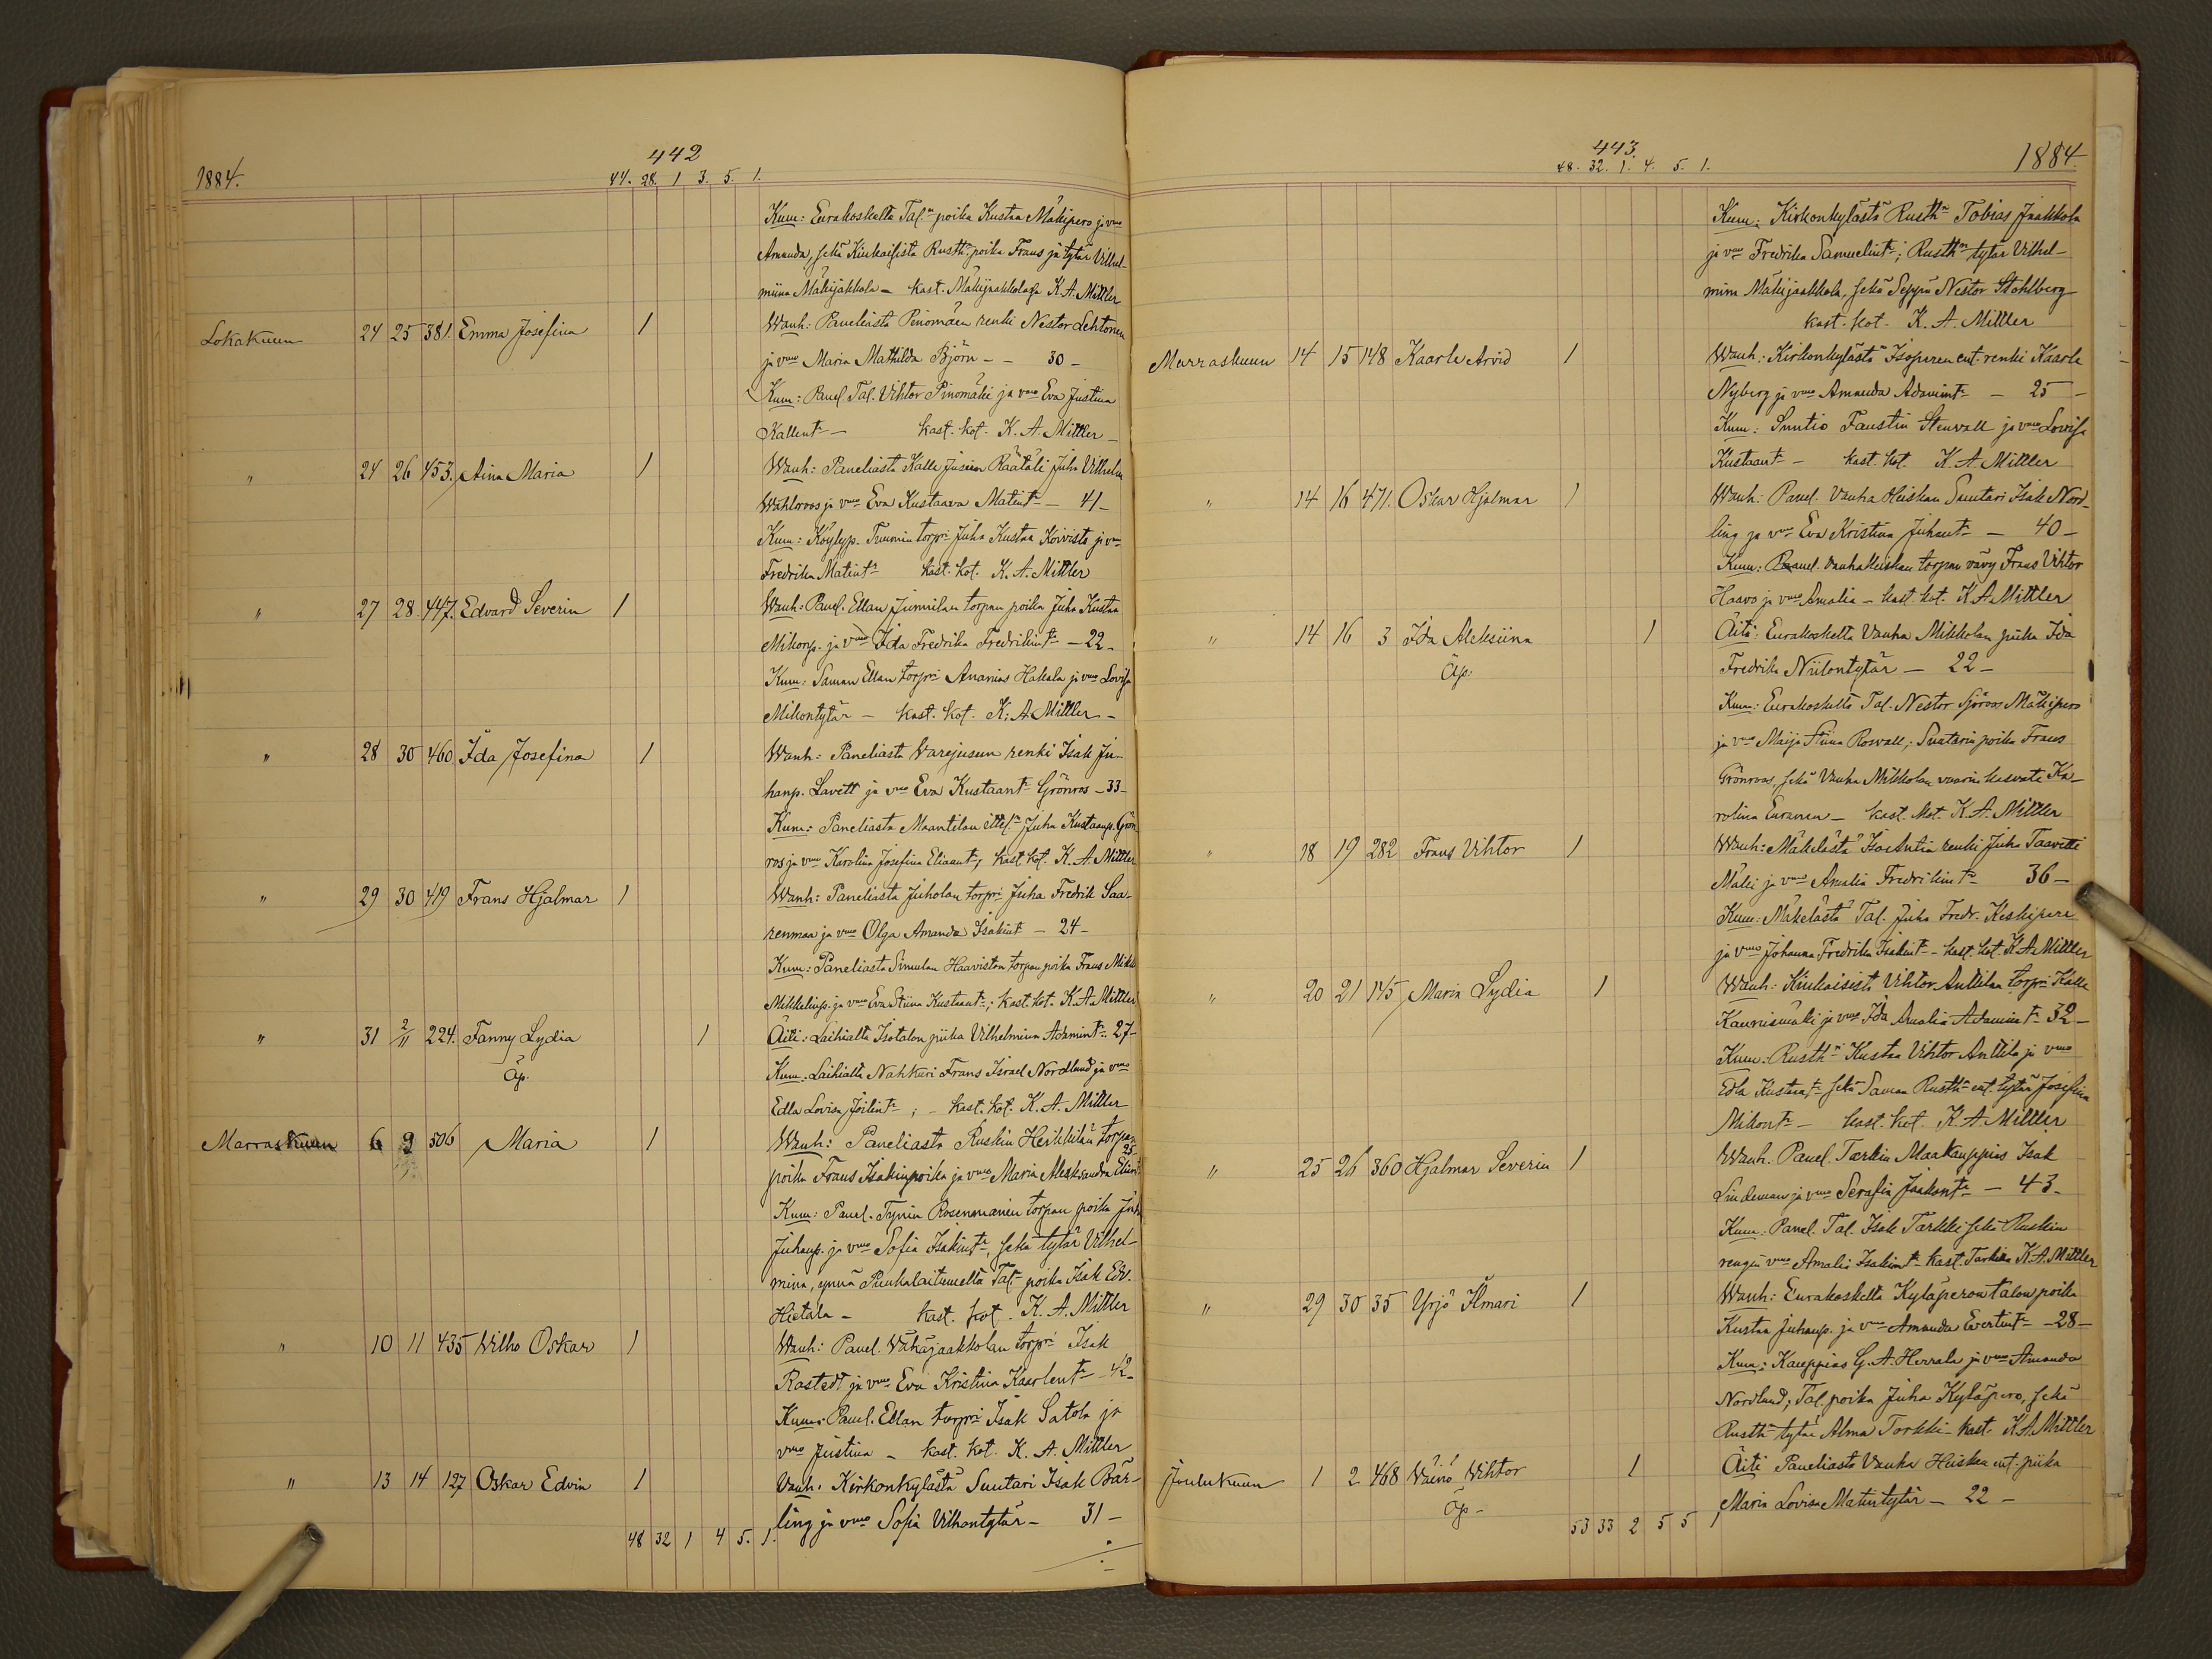 442
1884.
44. 28. 1 3. 5. 1.
Kum: Eurakoskelta Tal:n poika Kustaa Mäkipero ja vmo
Amanda, sekä Kiukaisista Rusth: poika Frans ja tytär Vilhel-
miina Mäkijakkola - kast. Mäkijaakkolassa K. A. Mittler
Lokakuun 24 25 381. Emma Josefina 1 Wanh: Paneliasta Pinomäen renki Nestor Lehtonen
ja vmo Maria Mathilda Björn - - 30 -
Kum: Panel Tal. Vihtor Pinomäki ja vmo Eva Justina
Kallent: - kast. kot. K. A. Mittler -
" 24 26 453. Aina Maria 1 Wanh: Paneliasta Kalle Jusien Räätäli Juha Vilhelm
Wahlroos ja vmo Eva Kustaava Matint: - 41 -
Kum: Köylyp. Tuumin torpri Juha Kustaa Koivisto ja vmo
Fredrika Matint: kast. kot. K. A. Mittler
" 27 28 447. Edvard Severin 1 Wanh: Panel. Ellan Junnilan torpan poika Juha Kustaa
Mikonp. ja vmo Ida Fredrika Fredrikint: - 22 -
Kum: Saman Ellan torpri Ananias Hakala ja vmo Lovisa
Mikontytär - kast. kot. K. A. Mittler -
" 28 30 460 Ida Josefina 1 Wanh: Paneliasta Varejusun renki Isak Ju-
hanp. Lavett ja vmo Eva Kustaant: Grönros - 33 -
Kum: Paneliasta Maantilan ittel:n Juha Kustaanp. Grön
ros ja vmo Karolina Josefina Eliaant:, kast. kot. K. A. Mittler
" 29 30 419 Frans Hjalmar 1 Wanh: Paneliasta Juholan torpri Juha Fredrik Saa-
renmaa ja vmo Olga Amanda Isakint - 24 -
Kum: Paneliasta Simulan Haaviston torpan poika Frans Mikk
Mikkelinp. ja vmo Eva Stiina Kustaant:; kast. kot. K. A. Mittler
" 31 2/11 224. Fanny Lydia 1 Äiti: Laihialta Isotalon piika Vilhelmiina Adamint: 27 -
Äp. Kum: Laihialta Nahkuri Frans Israel Nordlund ja vmo
Edla Lovisa Joilint:; - kast. kot. K. A. Mittler
Marraskuun 6 9 506 Maria 1 Wanh: Paneliasta Ruskin Heikkilän torpan
25
poika Frans Isakinpoika ja vmo Maria Aleksandra Eliant
Kum: Panel. Tynin Rosenmäen torpan poika Juha
Juhanp. ja vmo Sofia Isakint:, sekä tytär Vilhel-
mina, ynnä Punkalaitumelta Tal: poika Isak Edv.
Hietala - kast. kot. K. A. Mittler
" 10 11 435 Wilho Oskar 1 Wanh: Panel. Wähäjaakkolan torpri Isak
Rostedt ja vmo Eva Kristina Kaarlent: - 42 -
Kum: Panel. Ellan torpri Isak Satola ja
vmo Justina - kast. kot. K. A. Mittler
" 13 14 127 Oskar Edvin 1 Vanh. Kirkonkylästä Suutari Isak Bär-
ling ja vmo Sofia Vilhontytär - 31 -
48 32 1 4 5. 1.
443.
1884.
48. 32. 1. 4. 5. 1.
Kum: Kirkonkylästä Rusth:n Tobias Jaakkola
ja vmo Fredrika Samuelint:; Rusth:n tytär Vilhel-
mina Mäkijaakkola, sekä Seppä Nestor Stohlberg
kast. kot. K. A. Mittler
Marraskuun 14 15 148 Kaarle Arvid 1 Wanh: Kirkonkylästä Isoperen ent. renki Kaarle
Nyberg ja vmo Amanda Adamint: - 25 -
Kum: Suntio Faustin Stenvall ja vmo Lovisa
Kustaant: - kast. kot. K. A. Mittler
" 14 16 471. Oskar Hjalmar 1 Wanh: Panel. Vanha Heiskan Suutari Isak Nord-
ling ja vmo Eva Kristina Juhant: - 40 -
Kum: Panel. Vanhaheiskan torpan vävy Frans Vihtor
Haavo ja vmo Amalia - kast. kot. K. A. Mittler
" 14 16 3 Ida Aleksiina 1 Äiti: Eurakoskelta Vanha Mikkolan piika Ida
Äp. Fredrika Niilontytär - 22 -
Kum: Eurakoskelta Tal. Nestor Sjöroos Mäkipero
ja vmo Maija Stiina Rosvall; Suutarin poika Frans
Grönroos, sekä Vanha Mikkolan vaarin kasvatti Ka-
rolina Euranen - kast. kot. K. A. Mittler
" 18 19 282 Frans Vihtor 1 Wanh: Mäkelästä IsoAntin renki Juha Taavetti
Mäki ja vmo Amalia Fredrikint: 36 -
Kum: Mäkelästä Tal. Juha Fredr. Keskipere
ja vmo Johanna Fredrika Isakint: - kast. kot. K. A. Mittler
" 20 21 145 Maria Lydia 1 Wanh: Kiukaisista Vihtor Anttilan torpri Kalle
Kaunismäki ja vmo Ida Amalia Adamint: 32 -
Kum: Rusth:n Kustaa Vihtor Anttila ja vmo
Edla Kustaant: sekä Saman Rusth:n ent. tytär Josefina
Mikont: - kast. kot. K. A. Mittler
" 25 26 360 Hjalmar Severin 1 Wanh. Panel. Tarkin Maakauppias Isak
Lindeman ja vmo Serafia Jaakont: - 43 -
Kum. Panel. Tal. Isak Tarkki sekä Ruskin
rengin vmo Amalia Isakint: kast. Tarkilla K. A. Mittler
" 29 30 35 Yrjö Ilmari 1 Wanh: Eurakoskelta Kyläperon talon poika
Kustaa Juhanp. ja vmo Amanda Evertint: - 28 -
Kum: Kauppias G. A. Herrala ja vmo Amanda
Nordlund; Tal. poika Juha Kyläpero, sekä
Rusth:n tytär Alma Torkki - kast. K. A. Mittler
Joulukuun 1 2 468 Väinö Wihtor 1 Äiti Paneliasta Vanha Heiskan ent. piika
Äp - Maria Lovisa Matintytär - 22 -
53 33 2 5 5 1